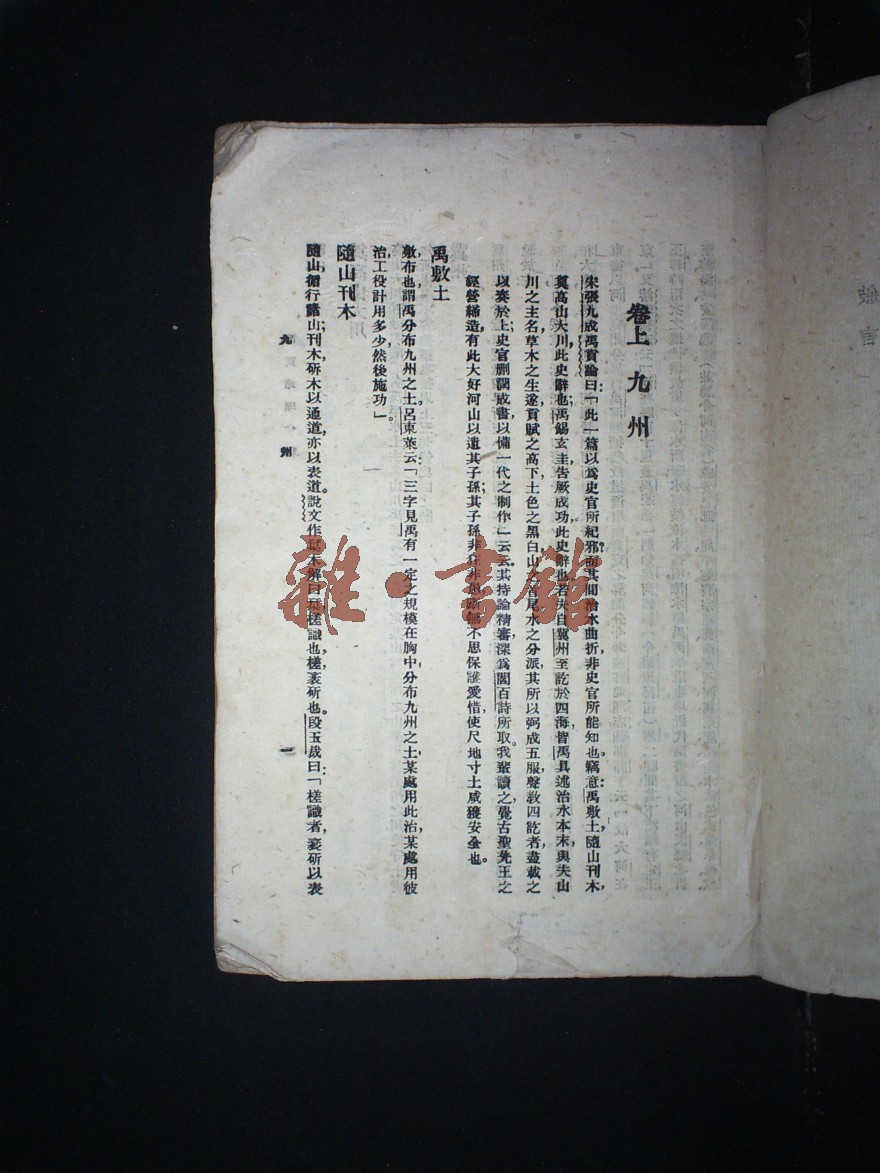 卷上 九州
宋張九成禹貢論曰：「此一篇以爲史官所紀邪？而其間治水曲折，非史官所能知也。竊意禹敷土，隨山刊木，
奠高山大川，此史辭也；禹錫玄圭，告厥成功，此史辭也。若夫自冀州至訖於四海，皆禹具述治水本末，與夫山
川之主名，草木之生遂，貢賦之高下，土色之黑白，山之首尾，水之分派，其所以弼成五服，聲教四訖者，盡載之
以奏於上，史官删潤成書，以備一代之制作」云云。其持論精審，深爲閻百詩所取。我輩讀之，覺古聖先王之
經營締造，有此大好河山以遺其子孫；其子孫非狂非愚，斷無不思保護愛惜，使尺地寸土咸獲安全也。
禹敷土
敷，布也，謂禹分布九州之土。呂東萊云：「三字見禹有一定之規模在胸中，分布九州之土，某處用此治，某處用彼
治，工役計用多少，然後施功」。
隨山刊木
隨山，循行諸山，刊木，斫木以通道，亦以表道。說文作 木，解曰：槎識也，槎，衺斫也。段玉裁曰：「槎識者，衺斫以表
九 州
一
雜·書館